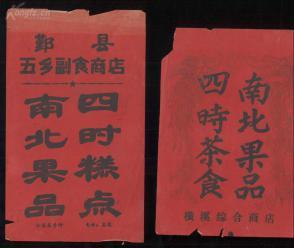 鄞县
五乡副食商店
四时糕点
南北果品
南北果品
四時茶食
横溪综合商店